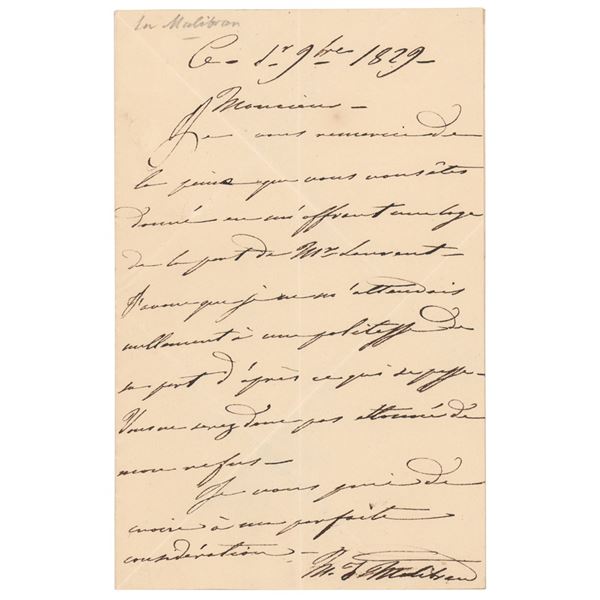 La Malibran
Ce 1r 9bre 1829 -
Monsieur -
Je vous remercie de
la peine que vous vous êtes
donné en m'offrant une loge
de la part de Mr Laurent -
J'avoue que je ne m'attendais
nullement à une politesse de
sa part d'après ce qui se passe -
Vous ne serez donc pas étonné de
mon refus -
Je vous prie de
croire à ma parfaite
considération -
M. F. Malibran